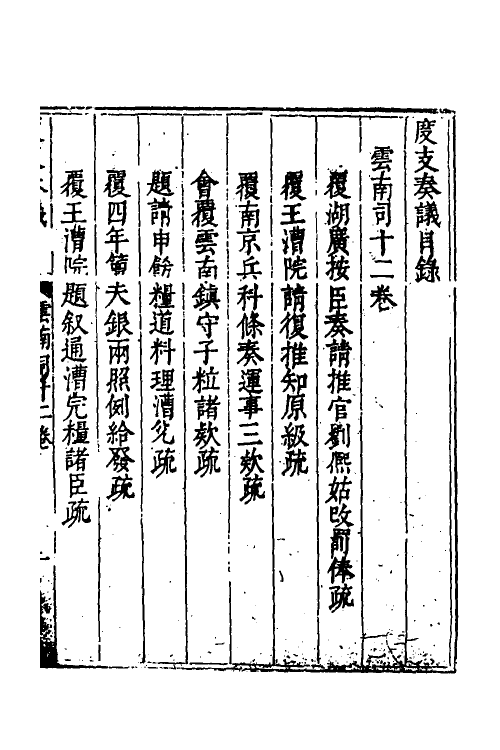 度支奏議目錄
雲南司十二卷
覆湖廣按臣奏請推官劉熈姑改罰俸疏
覆王漕院請復推知原級疏
覆南京兵科條奏運事三欵疏
會覆雲南鎮守子粒諸欵疏
題請申飭糧道料理漕兊疏
覆四年簰夫銀兩照例給發疏
覆王漕院題叙通漕完糧諸臣疏
雲南司十二卷
一